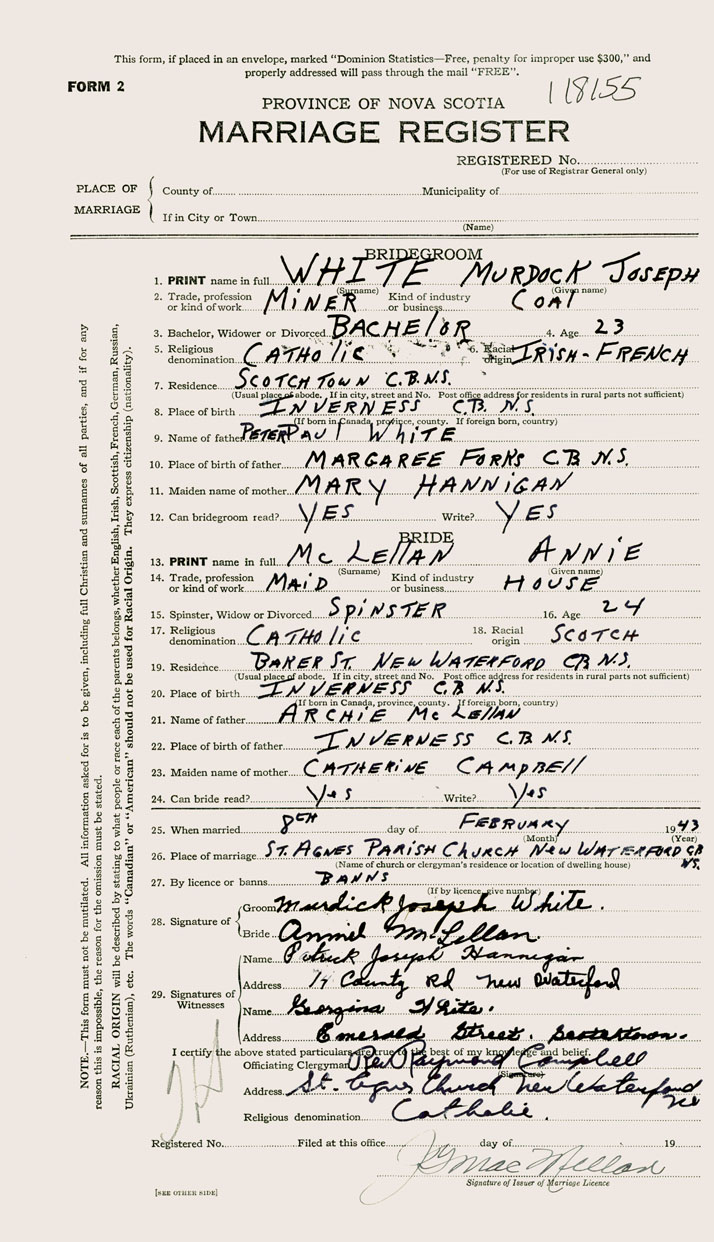 This form, if placed in an envelope, marked “Dominion Statistics—Free, penalty for improper use $300,” and
properly addressed will pass through the mail “FREE”.
FORM 2
118155
PROVINCE OF NOVA SCOTIA
MARRIAGE REGISTER
REGISTERED No.
(For use of Registrar General only)
PLACE OF MARRIAGE
County of Municipality of
If in City or Town
(Name)
BRIDEGROOM
1. PRINT name in full WHITE MURDOCK JOSEPH
(Surname) (Given name)
2. Trade, profession or kind of work MINER Kind of industry or business COAl
3. Bachelor, Widower or Divorced BACHElOR 4. Age 23
5. Religious denomination CATHOlic 6. Racial origin IRISH-FRENCH
7. Residence SCOTCHTOWN C.B.N.S.
(Usual place of abode. If in city, street and No. Post office address for residents in rural parts not sufficient)
8. Place of birth INVERNESS C.B. N.S.
(If born in Canada, province, county. If foreign born, country)
9. Name of father PETER PAUl WHITE
10. Place of birth of father MARGAREE FORKS C.B N.S.
11. Maiden name of mother MARY HANNIGAN
12. Can bridegroom read? YES Write? YES
BRIDE
13. PRINT name in full Mc LEllAN ANNiE
(Surname) (Given name)
14. Trade, profession or kind of work MAiD Kind of industry or business HOUSE
15. Spinster, Widow or Divorced SPiNSTER 16. Age 24
17. Religious denomination CATHOlic 18. Racial origin SCOTCH
19. Residence BAKER ST. NEW WATERFORD CB N.S.
(Usual place of abode. If in city, street and No. Post office address for residents in rural parts not sufficient)
20. Place of birth INVERNESS C.B N.S.
(If born in Canada, province, county. If foreign born, country)
21. Name of father ARCHIE Mc LEllAN
22. Place of birth of father INVERNESS C.B.N.S.
23. Maiden name of mother CATHERINE CAMPBEll
24. Can bride read? Yes Write? Yes
25. When married 8th day of FEBRUARY 1943
(Month) (Year)
26. Place of marriage ST. AGNES PARISH CHURCH NEW WATERFORD CB
N.S.
(Name of church or clergyman's residence or location of dwelling house)
27. By licence or banns BANNS
(If by licence, give number)
28. Signature of
Groom Murdick Joseph White.
Bride McLellan.
29. Signatures of Witnesses
Name Patrick Joseph Hannigan
Address County Rd New Waterford
Name Georgina White.
Address Emerald Street.
I certify the above stated particulars are true to the best of my knowledge and belief.
Officiating Clergyman Rev Raymond Campbell
(Signature)
Address St. Agnes Church New Waterford
NS
Religious denomination Catholic.
Registered No. Filed at this office day of 19
MacMillan
Signature of Issuer of Marriage Licence
[SEE OTHER SIDE]
NOTE.—This form must not be mutilated. All information asked for is to be given, including full Christian and surnames of all parties, and if for any
reason this is impossible, the reason for the omission must be stated.
RACIAL ORIGIN will be described by stating to what people or race each of the parents belongs, whether English, Irish, Scottish, French, German, Russian,
Ukrainian (Ruthenian), etc. The words “Canadian” or “American” should not be used for Racial Origin. They express citizenship (nationality).